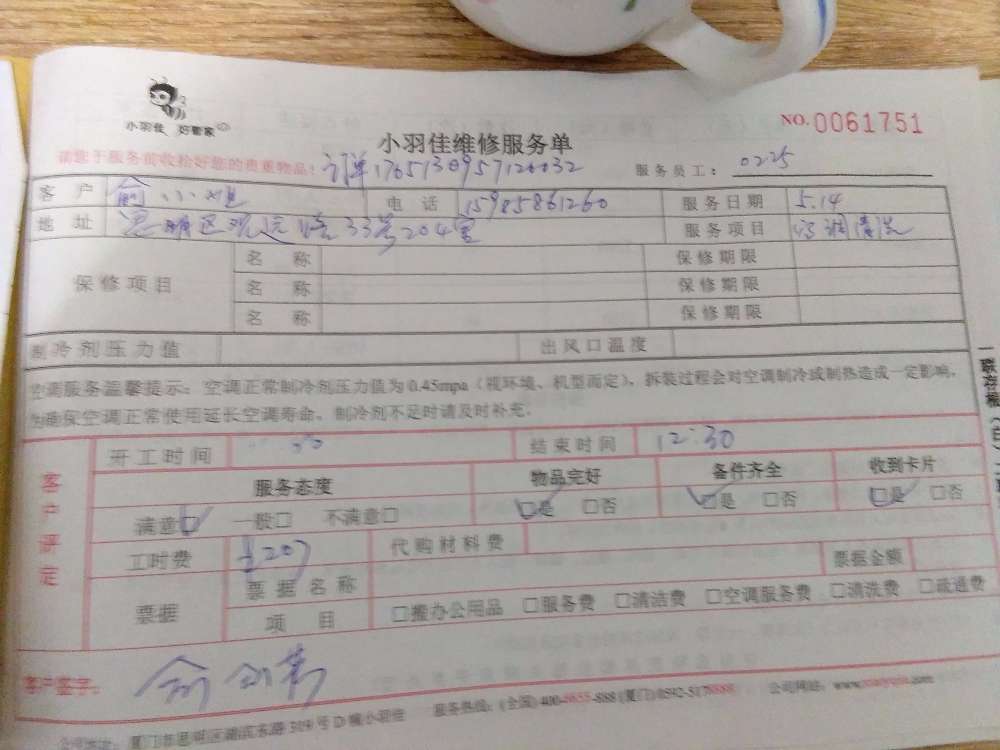 小羽佳 好管家
小羽佳维修服务单
NO.0061751
请您于服务前收拾好您的贵重物品!
服务员工: 0225
客户 俞小姐 电话 15985861260 服务日期 5.14
地址 思明区观远路33号204室 服务项目 空调清洗
保修项目 名称 保修期限
名称 保修期限
名称 保修期限
制冷剂压力值 出风口温度
空调服务温馨提示:空调正常制冷剂压力值为0.45mpa(视环境、机型而定),拆装过程会对空调制冷或制热造成一定影响,
为确保空调正常使用延长空调寿命,制冷剂不足时请及时补充.
客户评定
开工时间 结束时间 12:30
服务态度 物品完好 备件齐全 收到卡片
满意☑ 一般□ 不满意□ ☑是 □否 ☑是 □否 ☑是 □否
工时费 207 代购材料费
票据 票据名称 票据金额
项目 □搬办公用品 □服务费 □清洁费 □空调服务费 □清洗费 □疏通费
客户签字:
服务热线:(全国)400-8855-888 (厦门)0592-5178888 公司网站: